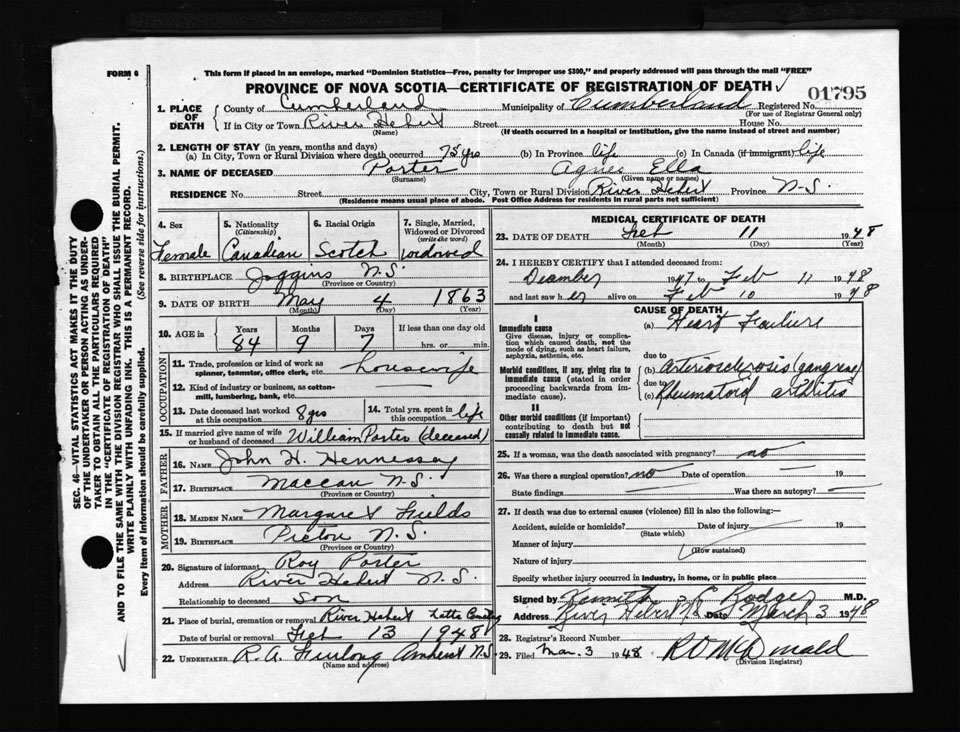 FORM 6
This form if placed in an envelope, marked "Dominion Statistics—Free, penalty for improper use $300," and properly addressed will pass through the mail "FREE"
PROVINCE OF NOVA SCOTIA—CERTIFICATE OF REGISTRATION OF DEATH
01795
1. PLACE OF DEATH County of Cumberland Municipality of Cumberland Registered No.
(For use of Registrar General only)
If in City or Town River Hebert Street House No.
(Name) (If death occurred in a hospital or institution, give the name instead of street and number)
2. LENGTH OF STAY (in years, months and days)
(a) In City, Town or Rural Division where death occurred 75 yrs (b) In Province life (c) In Canada (if immigrant) life
3. NAME OF DECEASED Porter Agnes Ella
(Surname) (Given name or names)
RESIDENCE No. Street City, Town or Rural Division River Hebert Province N.S.
(Residence means usual place of abode. Post Office Address for residents in rural parts not sufficient)
SEC. 46—VITAL STATISTICS ACT MAKES IT THE DUTY
OF THE UNDERTAKER OR PERSON ACTING AS UNDER-
TAKER TO OBTAIN ALL THE PARTICULARS REQUIRED
IN THE "CERTIFICATE OF REGISTRATION OF DEATH"
AND TO FILE THE SAME WITH THE DIVISION REGISTRAR WHO SHALL ISSUE THE BURIAL PERMIT.
WRITE PLAINLY WITH UNFADING INK. THIS IS A PERMANENT RECORD.
Every item of Information should be carefully supplied. (See reverse side for instructions.)
4. Sex 5. Nationality (Citizenship) 6. Racial Origin 7. Single, Married, Widowed or Divorced (write the word)
Female Canadian Scotch widowed
8. BIRTHPLACE Joggins N.S.
(Province or Country)
9. DATE OF BIRTH May 4 1863
(Month) (Day) (Year)
10. AGE in Years Months Days If less than one day old
84 9 7 hrs. or min.
OCCUPATION
11. Trade, profession or kind of work as spinner, teamster, office clerk, etc. housewife
12. Kind of industry or business, as cotton-mill, lumbering, bank, etc.
13. Date deceased last worked at this occupation 8 yrs 14. Total yrs. spent in this occupation life
15. If married give name of wife or husband of deceased William Porter (deceased)
FATHER
16. NAME John H. Hennessey
17. BIRTHPLACE Maccan N.S.
(Province or Country)
MOTHER
18. MAIDEN NAME Margaret Fields
19. BIRTHPLACE Pictou N.S.
(Province or Country)
20. Signature of informant Roy Porter
Address River Hebert N.S.
Relationship to deceased son
21. Place of burial, cremation or removal River Hebert
Date of burial or removal Feb 13 1948
22. UNDERTAKER R.A. Furlong Amherst N.S.
(Name and address)
MEDICAL CERTIFICATE OF DEATH
23. DATE OF DEATH Feb 11 1948
(Month) (Day) (Year)
24. I HEREBY CERTIFY that I attended deceased from:
December 1947 to Feb 11 1948
and last saw her alive on Feb 10 1948
CAUSE OF DEATH
I
Immediate cause (a) Heart Failure
Give disease, injury or complica-
tion which caused death, not the
mode of dying, such as heart failure,
asphyxia, asthenia, etc.
due to
Morbid conditions, if any, giving rise to (b) Arteriosclerosis (gangrene)
immediate cause (stated in order due to
proceeding backwards from im- (c) Rheumatoid arthritis
mediate cause).
II
Other morbid conditions (if important)
contributing to death but not
causally related to immediate cause.
25. If a woman, was the death associated with pregnancy? no
26. Was there a surgical operation? no Date of operation 19
State findings Was there an autopsy?
27. If death was due to external causes (violence) fill in also the following:—
Accident, suicide or homicide? Date of injury 19
(State which)
Manner of injury
(How sustained)
Nature of injury
Specify whether injury occurred in industry, in home, or in public place
Signed by Kenneth C Rodger M.D.
Address River Hebert N.S. Date March 3 1948
28. Registrar's Record Number
29. Filed Mar. 3 1948 R D McDonald
(Division Registrar)